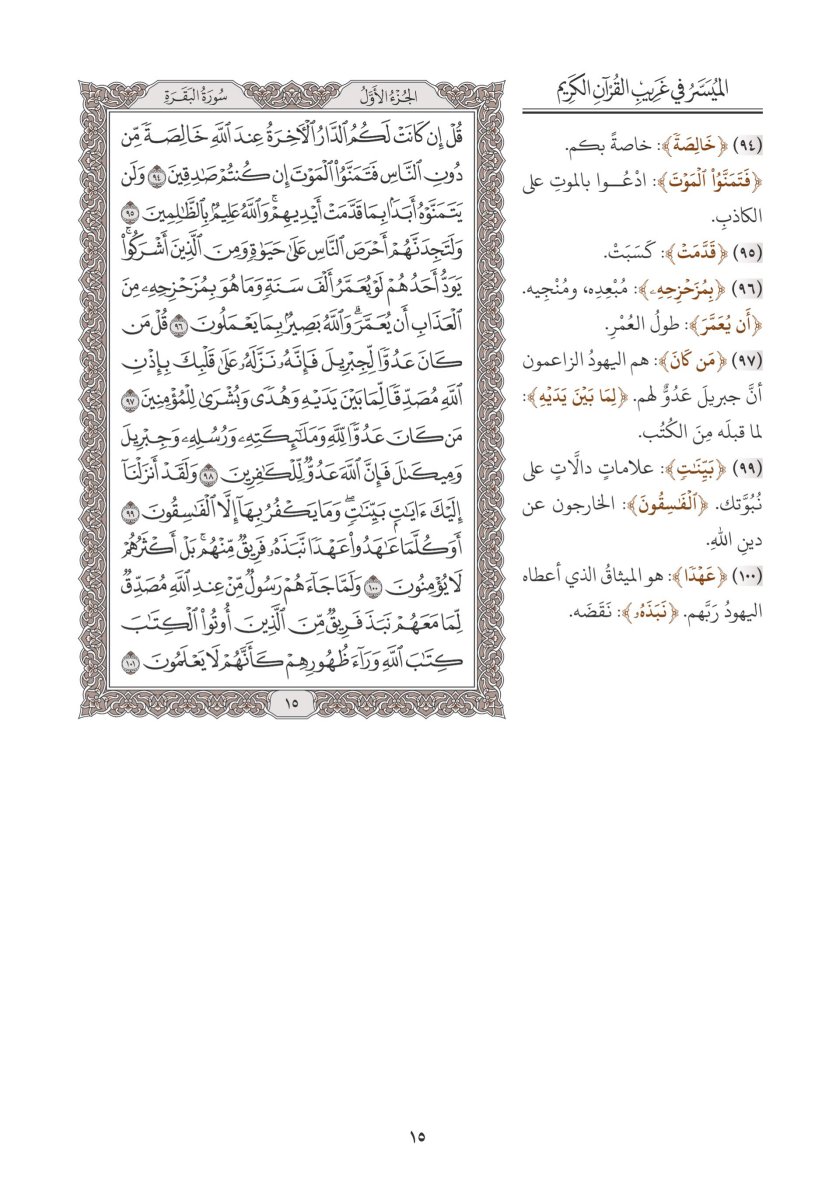 الميسر في غريب القرآن الكريم
(٩٤) ﴿خَالِصَةً﴾: خاصةً بكم.
﴿فَتَمَنَّوُاْ ٱلْمَوْتَ﴾: ادْعُـــوا بالموتِ على
الكاذبِ.
(٩٥) ﴿قَدَّمَتْ﴾: كَسَبَتْ.
(٩٦) ﴿بِمُزَحْزِحِهِۦ﴾: مُبْعِدِه، ومُنْجِيه.
﴿أَن يُعَمَّرَ﴾: طولُ العُمْرِ.
(٩٧) ﴿مَن كَانَ﴾: هم اليهودُ الزاعمون
أنَّ جبريلَ عَدُوٌّ لهم. ﴿لِمَا بَيْنَ يَدَيْهِ﴾:
لما قبلَه مِنَ الكُتُب.
(٩٩) ﴿بَيِّنَٰتٍ﴾: علاماتٍ دالَّاتٍ على
نُبُوَّتك. ﴿ٱلْفَٰسِقُونَ﴾: الخارجون عن
دينِ اللهِ.
(١٠٠) ﴿عَهْدًا﴾: هو الميثاقُ الذي أعطاه
اليهودُ رَبَّهم. ﴿نَبَذَهُۥ﴾: نَقَضَه.
الجُزْءُ الأَوَّلُ
سُورَةُ البَقَرَةِ
قُلْ إِن كَانَتْ لَكُمُ ٱلدَّارُ ٱلْأٓخِرَةُ عِندَ ٱللَّهِ خَالِصَةً مِّن
دُونِ ٱلنَّاسِ فَتَمَنَّوُاْ ٱلْمَوْتَ إِن كُنتُمْ صَٰدِقِينَ ٩٤ وَلَن
يَتَمَنَّوْهُ أَبَدًۢا بِمَا قَدَّمَتْ أَيْدِيهِمْۚ وَٱللَّهُ عَلِيمٌۢ بِٱلظَّٰلِمِينَ ٩٥
وَلَتَجِدَنَّهُمْ أَحْرَصَ ٱلنَّاسِ عَلَىٰ حَيَوٰةٍ وَمِنَ ٱلَّذِينَ أَشْرَكُواْۚ
يَوَدُّ أَحَدُهُمْ لَوْ يُعَمَّرُ أَلْفَ سَنَةٍ وَمَا هُوَ بِمُزَحْزِحِهِۦ مِنَ
ٱلْعَذَابِ أَن يُعَمَّرَۗ وَٱللَّهُ بَصِيرٌۢ بِمَا يَعْمَلُونَ ٩٦ قُلْ مَن
كَانَ عَدُوًّا لِّجِبْرِيلَ فَإِنَّهُۥ نَزَّلَهُۥ عَلَىٰ قَلْبِكَ بِإِذْنِ
ٱللَّهِ مُصَدِّقًا لِّمَا بَيْنَ يَدَيْهِ وَهُدًى وَبُشْرَىٰ لِلْمُؤْمِنِينَ ٩٧
مَن كَانَ عَدُوًّا لِّلَّهِ وَمَلَٰٓئِكَتِهِۦ وَرُسُلِهِۦ وَجِبْرِيلَ
وَمِيكَىٰلَ فَإِنَّ ٱللَّهَ عَدُوٌّ لِّلْكَٰفِرِينَ ٩٨ وَلَقَدْ أَنزَلْنَآ
إِلَيْكَ ءَايَٰتٍۭ بَيِّنَٰتٍۖ وَمَا يَكْفُرُ بِهَآ إِلَّا ٱلْفَٰسِقُونَ ٩٩
أَوَكُلَّمَا عَٰهَدُواْ عَهْدًا نَّبَذَهُۥ فَرِيقٌ مِّنْهُمۚ بَلْ أَكْثَرُهُمْ
لَا يُؤْمِنُونَ ١٠٠ وَلَمَّا جَآءَهُمْ رَسُولٌ مِّنْ عِندِ ٱللَّهِ مُصَدِّقٌ
لِّمَا مَعَهُمْ نَبَذَ فَرِيقٌ مِّنَ ٱلَّذِينَ أُوتُواْ ٱلْكِتَٰبَ
كِتَٰبَ ٱللَّهِ وَرَآءَ ظُهُورِهِمْ كَأَنَّهُمْ لَا يَعْلَمُونَ ١٠١
١٥
١٥